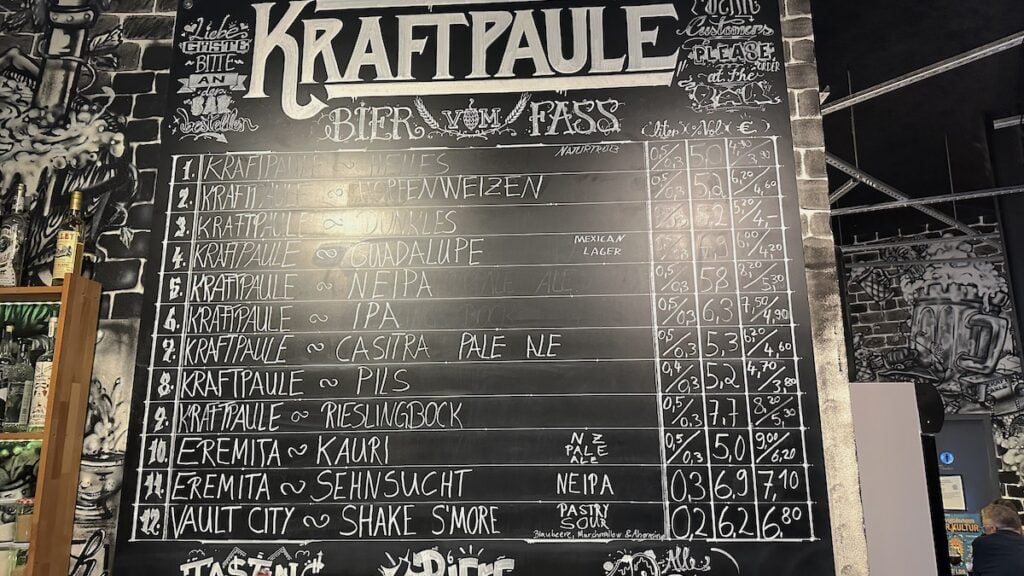 KRAFTPAULE
Liebe
Gäste
BITTE
AN
DER
BAR
bestellen
Customers
PLEASE
at the
BIER VOM FASS
Liter % Vol % €
1. KRAFTPAULE ~ HELLES NATURTRÜB 0,5/0,3 5,0
2. KRAFTPAULE ~ HOPFENWEIZEN 0,5/0,3 5,2 6,20/4,60
3. KRAFTPAULE ~ DUNKLES 0,5/0,3 5,2 5,20/4,-
4. KRAFTPAULE ~ GUADALUPE MEXICAN LAGER 0,5/0,3
5. KRAFTPAULE ~ NEIPA 0,5/0,3 5,8
6. KRAFTPAULE ~ IPA 0,5/0,3 6,3 7,50/4,90
7. KRAFTPAULE ~ CASITRA PALE ALE 0,5/0,3 5,3 6,20/4,60
8. KRAFTPAULE ~ PILS 0,4/0,3 5,2 4,70/3,80
9. KRAFTPAULE ~ RIESLINGBOCK 0,5/0,3 7,7 8,20/5,30
10. EREMITA ~ KAURI NZ PALE ALE 0,5/0,3 5,0 9,00/6,20
11. EREMITA ~ SEHNSUCHT NEIPA 0,3 6,9 7,10
12. VAULT CITY ~ SHAKE S'MORE PASTRY SOUR 0,2 6,2 6,80
Blaubeere, Marshmallow &
TASTING
Alle
KULTUR